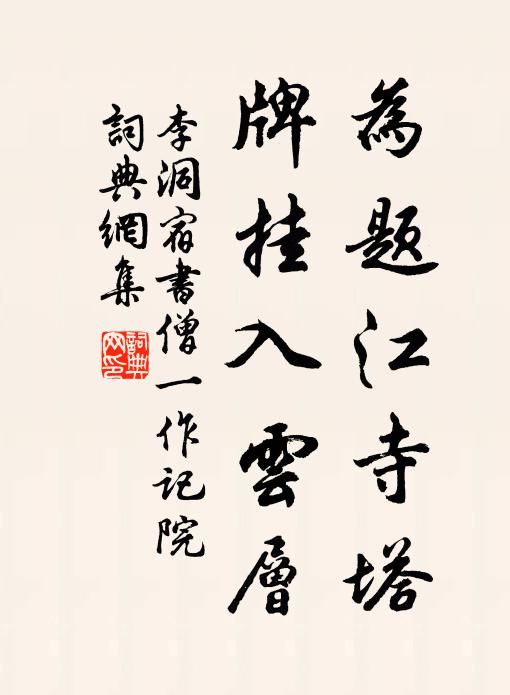 為題江寺塔
牌挂入雲層
李洞宿書僧一作記院
詞典網集
詞典網印